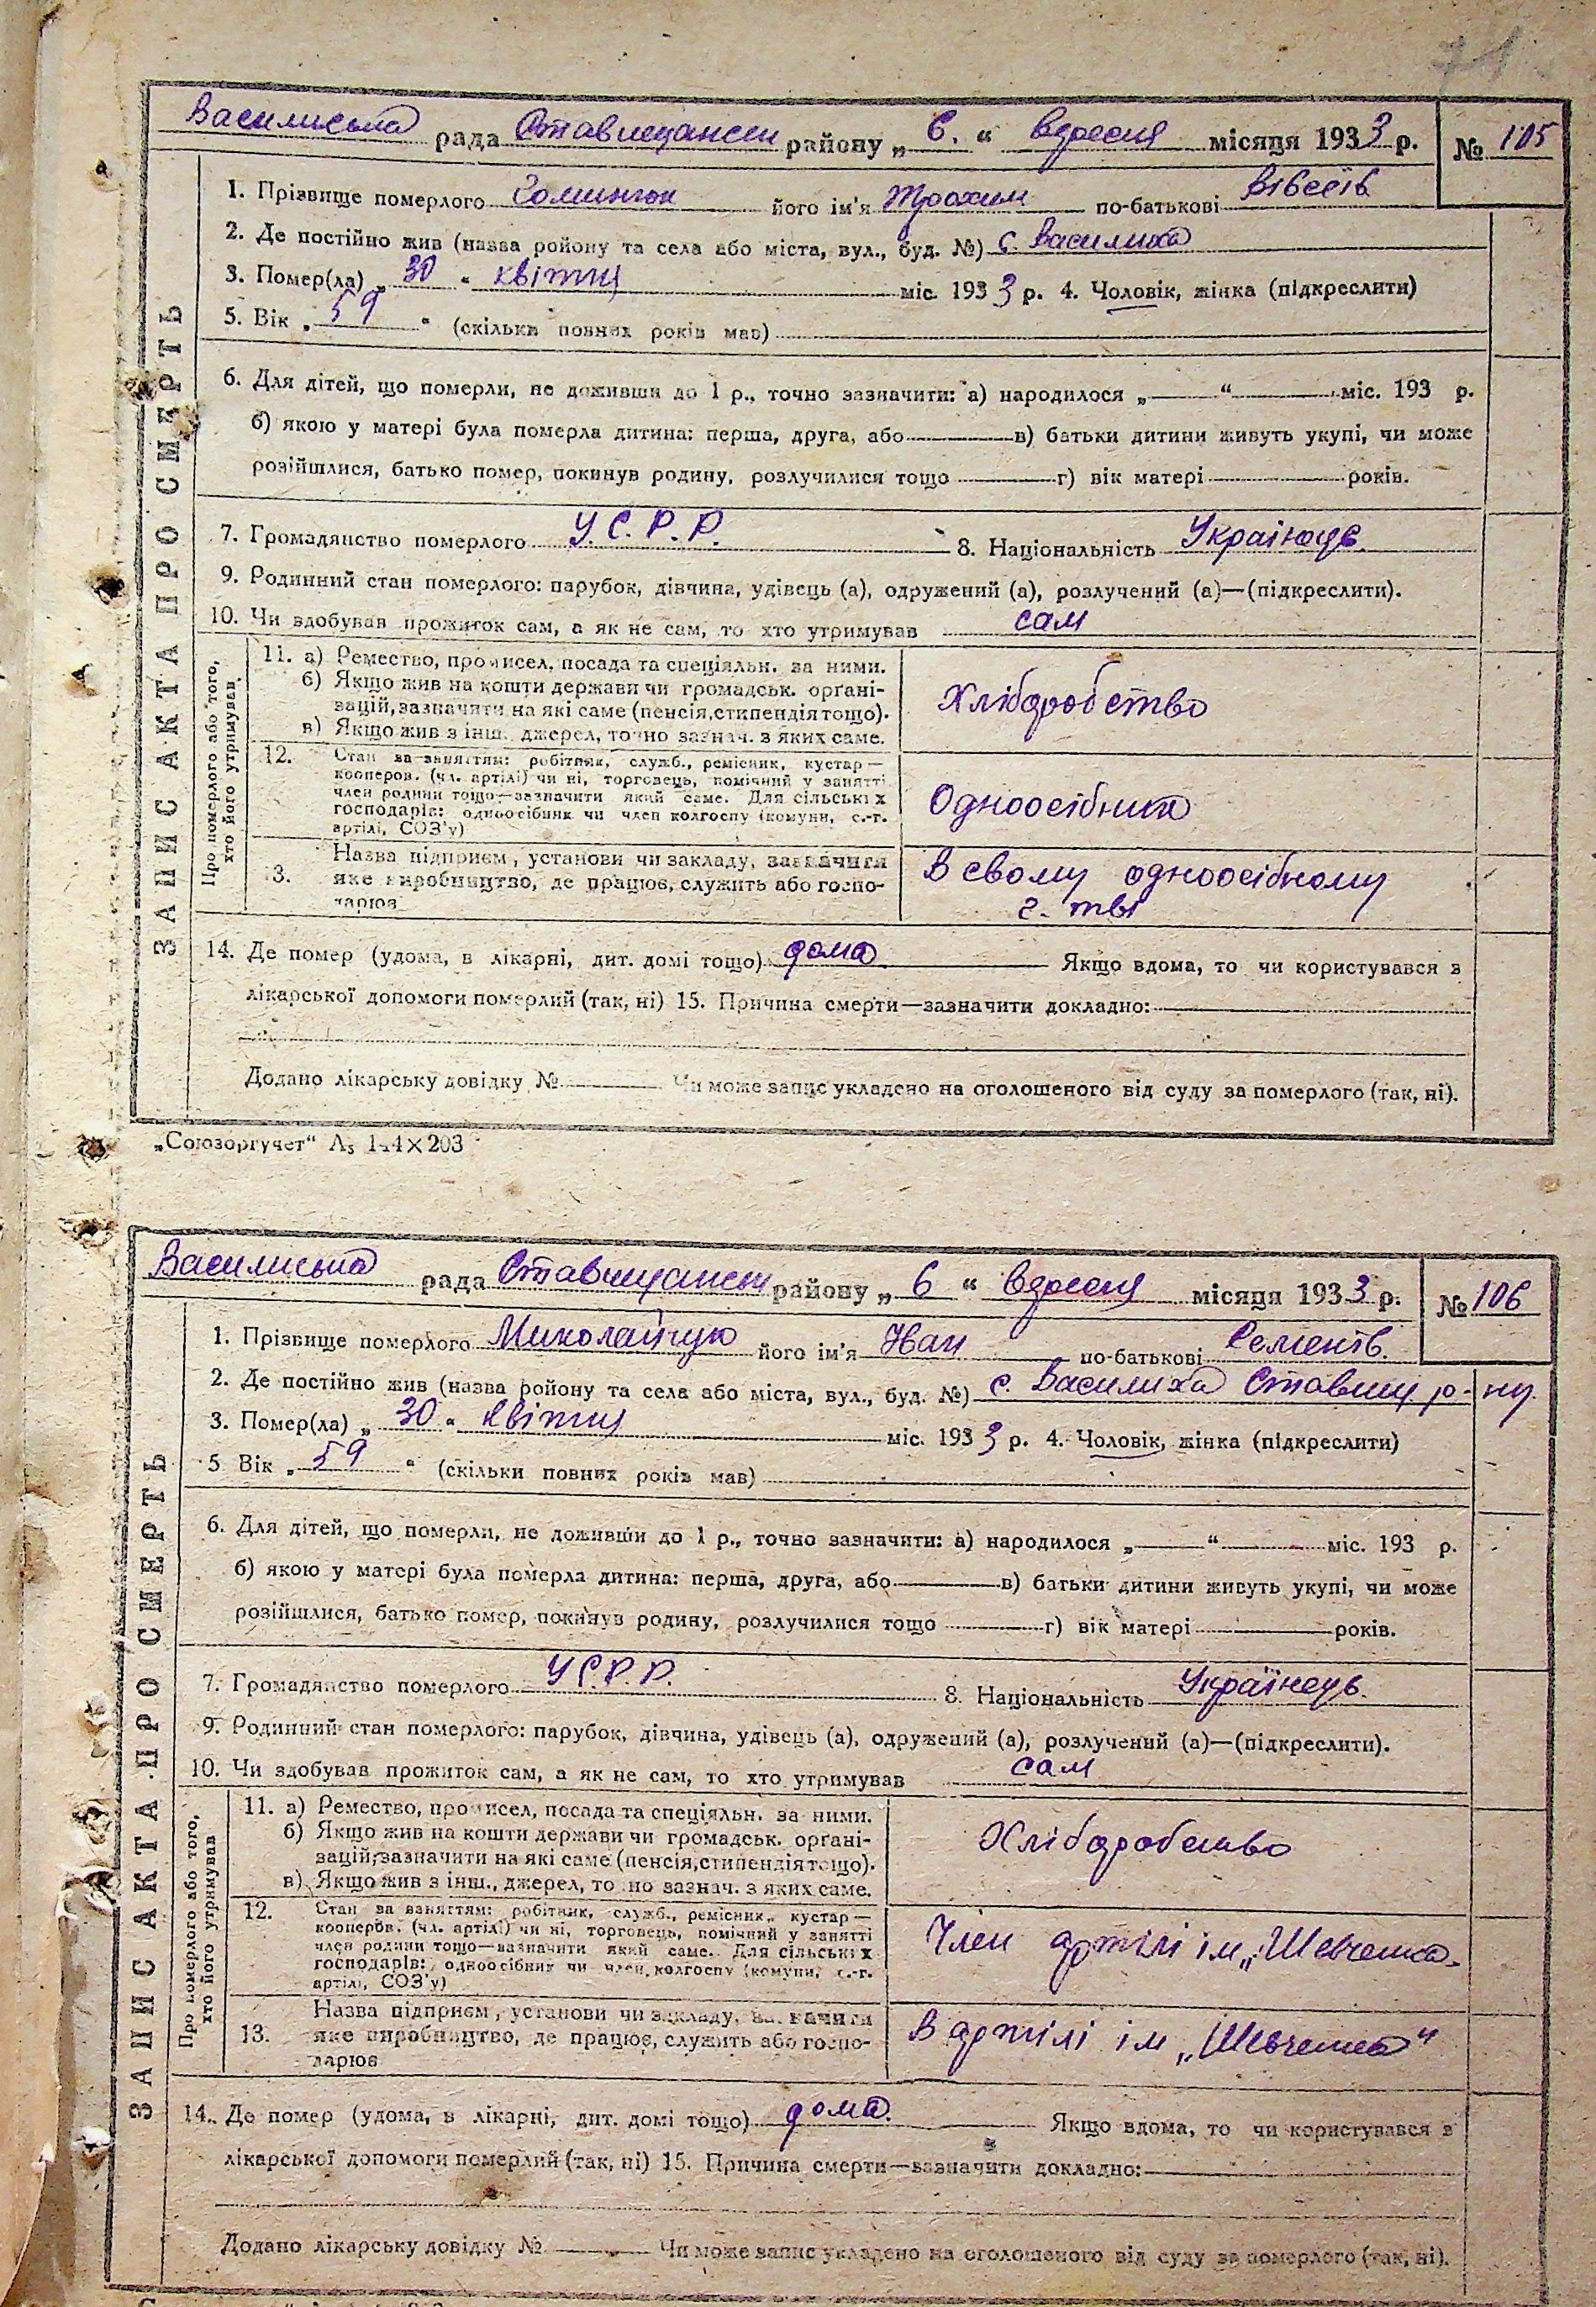 71
Василиська рада Ставищанськ району „ 6. “ вересня місяця 1933 р. № 105
ЗАПИС АКТА ПРО СМЕРТЬ
1. Прізвище померлого його ім'я Трохим по-батькові
2. Де постійно жив (назва ройону та села або міста, вул., буд. №) с. Василиха
3. Помер(ла) „ 30 “ квітня міс. 1933 р. 4. Чоловік, жінка (підкреслити)
5. Вік „ 59 “ (скільки повних років мав)
6. Для дітей, що померли, не доживши до 1 р., точно зазначити: а) народилося „ — “ — міс. 193 р.
б) якою у матері була померла дитина: перша, друга, або — в) батьки дитини живуть укупі, чи може
розійшлися, батько помер, покинув родину, розлучилися тощо — г) вік матері — років.
7. Громадянство померлого У.С.Р.Р. 8. Національність Українець
9. Родинний стан померлого: парубок, дівчина, удівець (а), одружений (а), розлучений (а)—(підкреслити).
10. Чи здобував прожиток сам, а як не сам, то хто утримував сам
Про померлого або того, хто його утримував
11. а) Ремество, промисел, посада та спеціяльн. за ними.
б) Якщо жив на кошти держави чи громадськ. орґані-
зацій, зазначити на які саме (пенсія, стипендія тощо).
в) Якщо жив з інш. джерел, точно зазнач. з яких саме.
Хліборобство
12. Стан за заняттям: робітник, служб., ремісник, кустар—
кооперов. (чл. артілі) чи ні, торговець, помічний у занятті
член родини тощо—зазначити який саме. Для сільських
господарів: одноосібник чи член колгоспу (комуни, с.-г.
артілі, СОЗ'у)
Одноосібника
13. Назва підприєм, установи чи закладу, зазначити
яке виробництво, де працює, служить або госпо-
дарює
В свому одноосібному
г. тві
14. Де помер (удома, в лікарні, дит. домі тощо) дома Якщо вдома, то чи користувався з
лікарської допомоги померлий (так, ні) 15. Причина смерти—зазначити докладно: —
Додано лікарську довідку № — Чи може запис укладено на оголошеного від суду за померлого (так, ні).
„Союзоргучет“ А5 144×203
Василиська рада Ставищанськ району „ 6 “ вересня місяця 1933 р. № 106
ЗАПИС АКТА ПРО СМЕРТЬ
1. Прізвище померлого Миколайчук його ім'я Иван по-батькові Семенів.
2. Де постійно жив (назва ройону та села або міста, вул., буд. №) с. Василиха Ставищ. р-ну.
3. Помер(ла) „ 30 “ квітня міс. 1933 р. 4. Чоловік, жінка (підкреслити)
5 Вік „ 59 “ (скільки повних років мав)
6. Для дітей, що померли, не доживши до 1 р., точно зазначити: а) народилося „ — “ — міс. 193 р.
б) якою у матері була померла дитина: перша, друга, або — в) батьки дитини живуть укупі, чи може
розійшлися, батько помер, покинув родину, розлучилися тощо — г) вік матері — років.
7. Громадянство померлого У.С.Р.Р. 8. Національність Українець.
9. Родинний стан померлого: парубок, дівчина, удівець (а), одружений (а), розлучений (а)—(підкреслити).
10. Чи здобував прожиток сам, а як не сам, то хто утримував сам
Про померлого або того, хто його утримував
11. а) Ремество, промисел, посада та спеціяльн. за ними.
б) Якщо жив на кошти держави чи громадськ. орґані-
зацій, зазначити на які саме (пенсія, стипендія тощо).
в) Якщо жив з інш., джерел, точно зазнач. з яких саме.
Хліборобство
12. Стан за заняттям: робітник, служб., ремісник, кустар—
кооперов. (чл. артілі) чи ні, торговець, помічний у занятті
член родини тощо—зазначити який саме. Для сільських
господарів: одноосібник чи член колгоспу (комуни, с.-г.
артілі, СОЗ'у)
Член артілі ім „Шевченка.
13. Назва підприєм, установи чи закладу, зазначити
яке виробництво, де працює, служить або госпо-
дарює
В артілі ім „Шевченка“
14. Де помер (удома, в лікарні, дит. домі тощо) дома. Якщо вдома, то чи користувався з
лікарської допомоги померлий (так, ні) 15. Причина смерти—зазначити докладно: —
Додано лікарську довідку № — Чи може запис укладено на оголошеного від суду за померлого (так, ні).